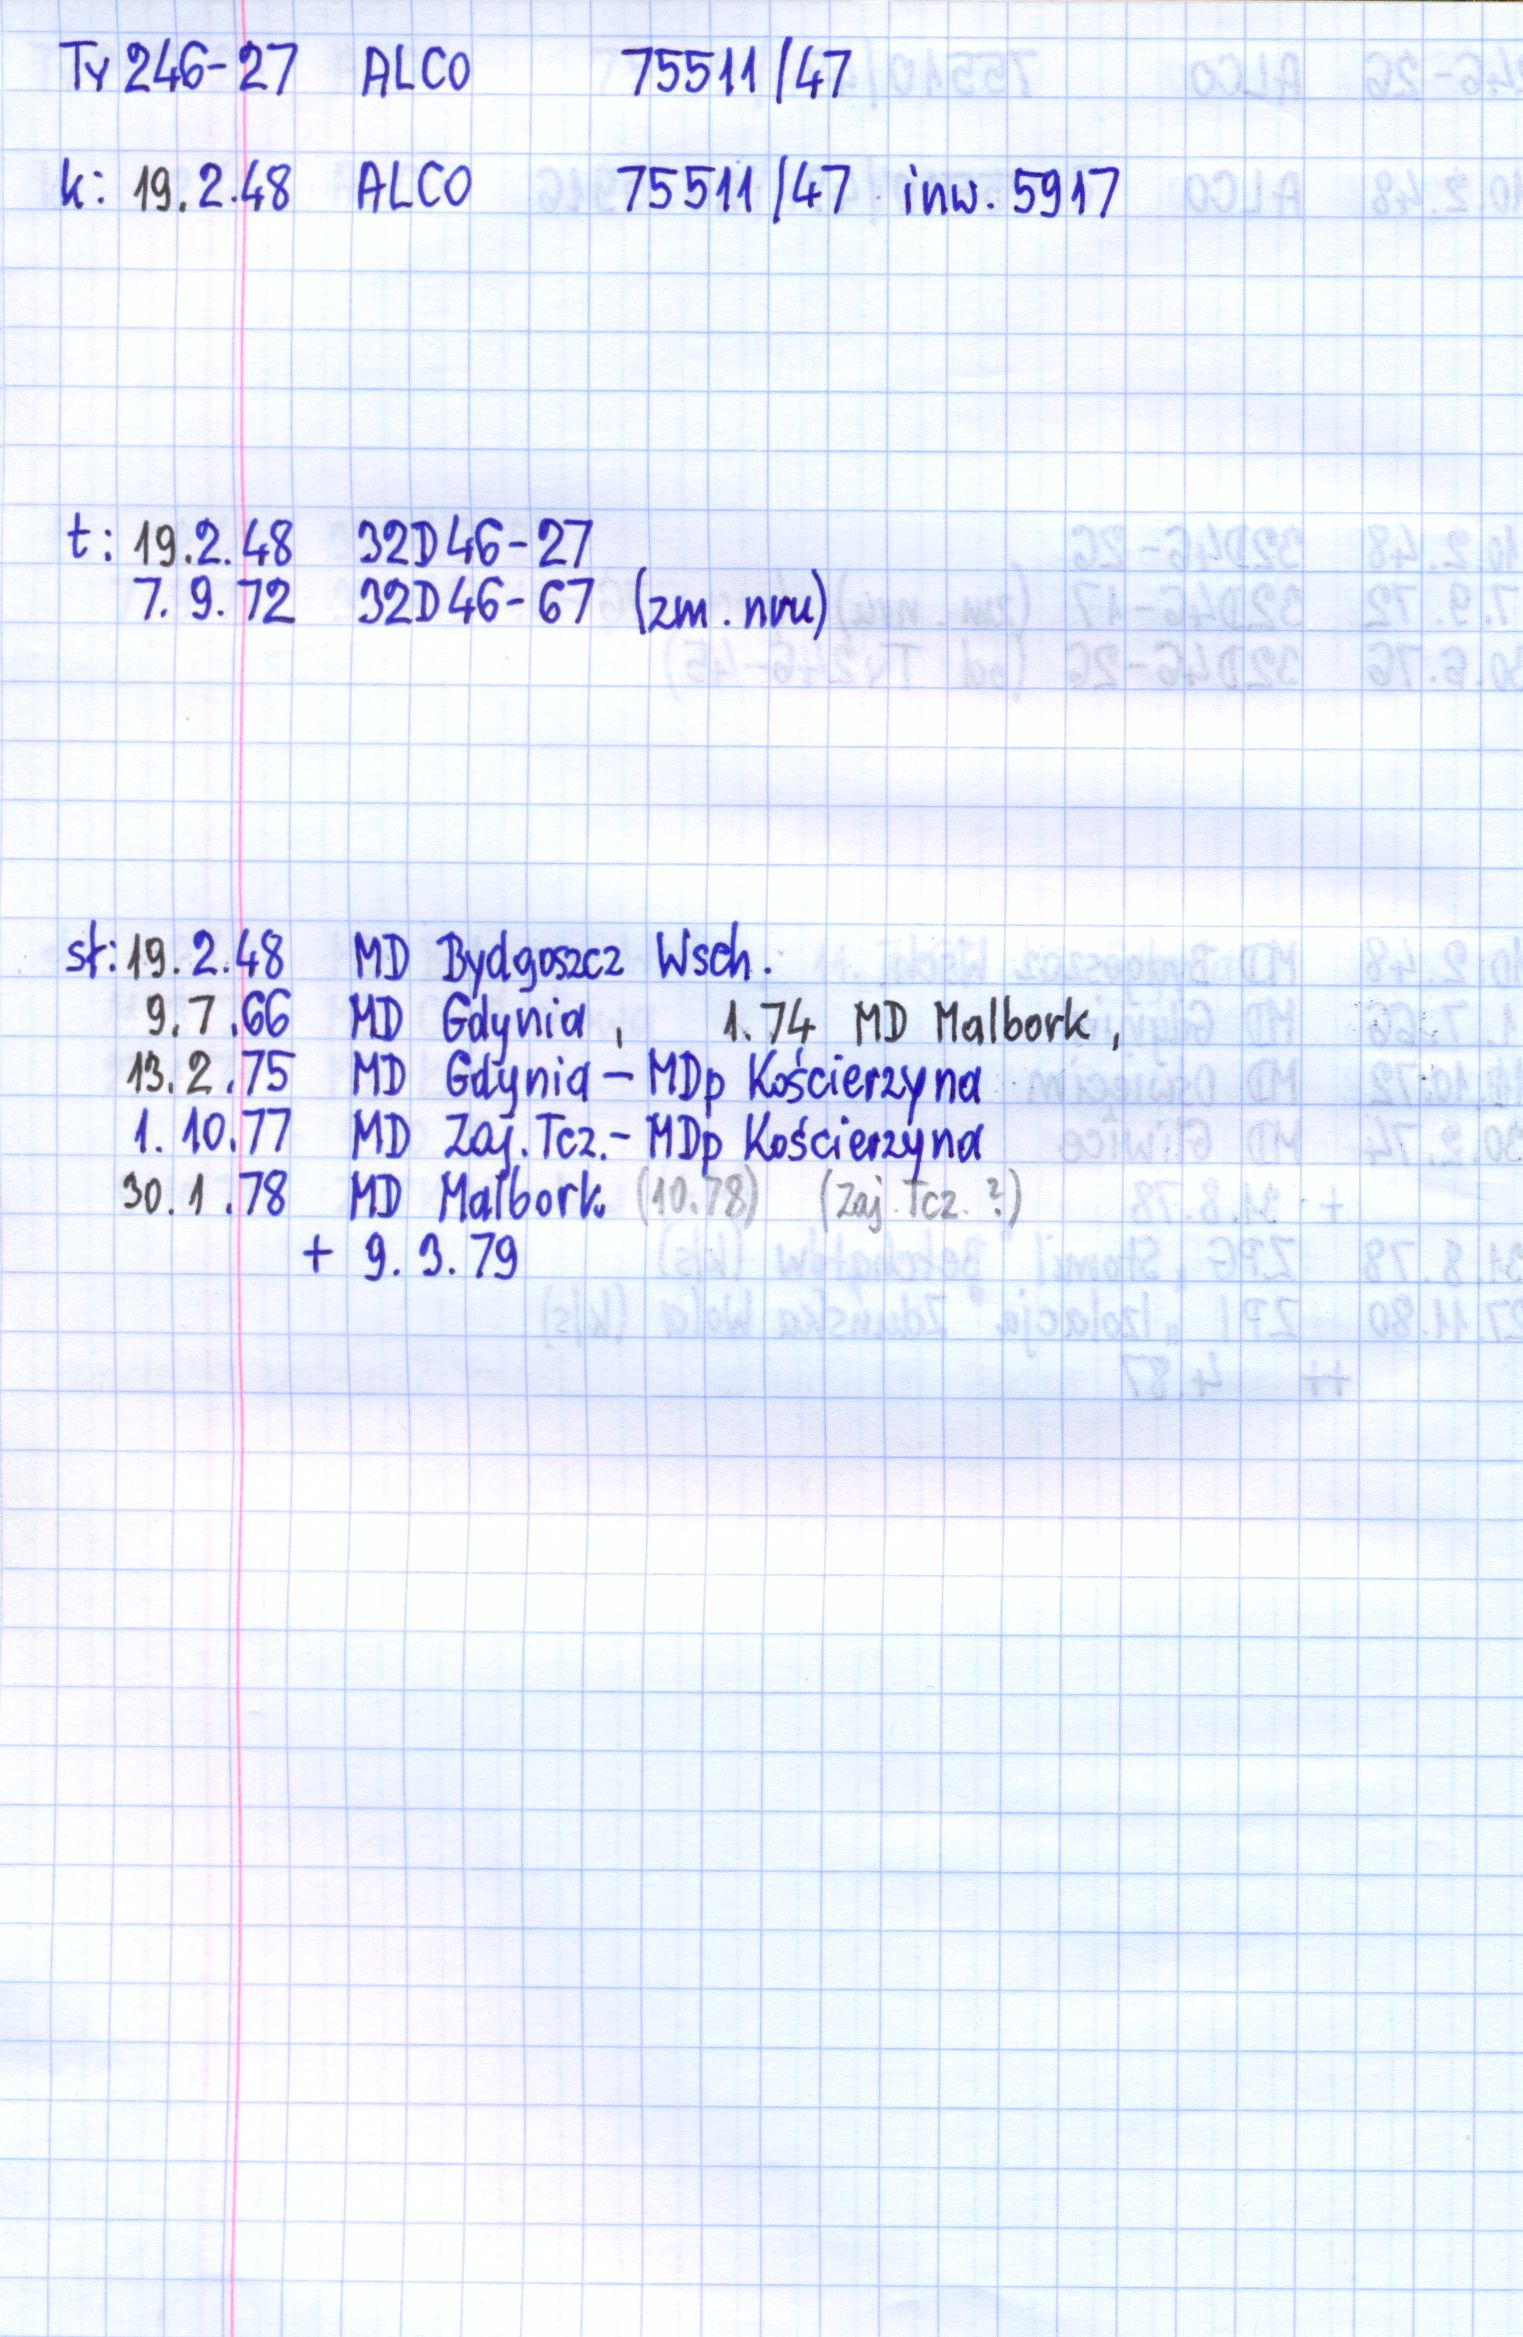 Ty 246-27 ALCO 75511/47
k: 19.2.48 ALCO 75511/47 inw. 5917
t: 19.2.48 32D46-27
7.9.72 32D46-67 (zm. nru)
st: 19.2.48 MD Bydgoszcz Wsch.
9.7.66 MD Gdynia, 1.74 MD Malbork,
13.2.75 MD Gdynia - MDp Kościerzyna
1.10.77 MD Zaj. Tcz. - MDp Kościerzyna
30.1.78 MD Malbork. (10.78) (Zaj. Tcz. ?)
+ 9.3.79